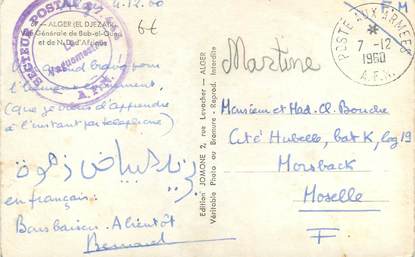 4.12.60
6€
F.M
ALGER (EL DJEZAÏR)
Générale de Bab-el-Oued
et de N.-D. d'Afrique
SECTEUR POSTAL 87
Vaguemestre
A.F.N.
POSTE AUX ARMEES
7 -12
1960
A.F.N.
Martine
grand bravo pour
l'heureux événement,
(que je viens d'apprendre
à l'instant par téléphone)
en français:
Bons baisers. A bientôt
Bernard
Edition JOMONE 2, rue Levacher — ALGER
Véritable Photo au Bromure - Reprod. Interdite
Monsieur et Mad. Cl. Bouche
Cité Hubelle, bat K, log 19
Morsback
Moselle
F